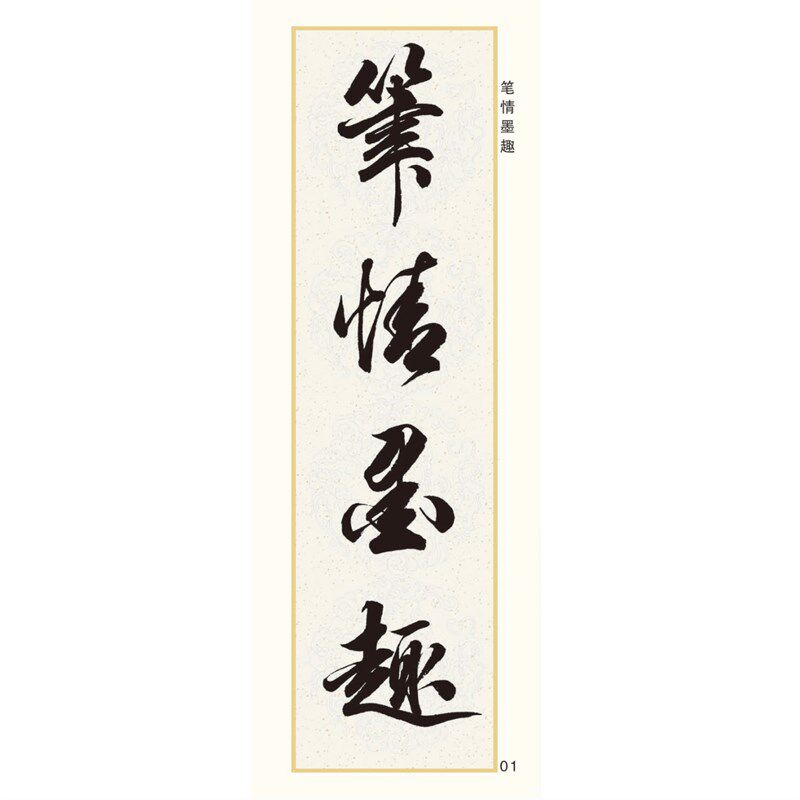 筆情墨趣
笔情墨趣
01